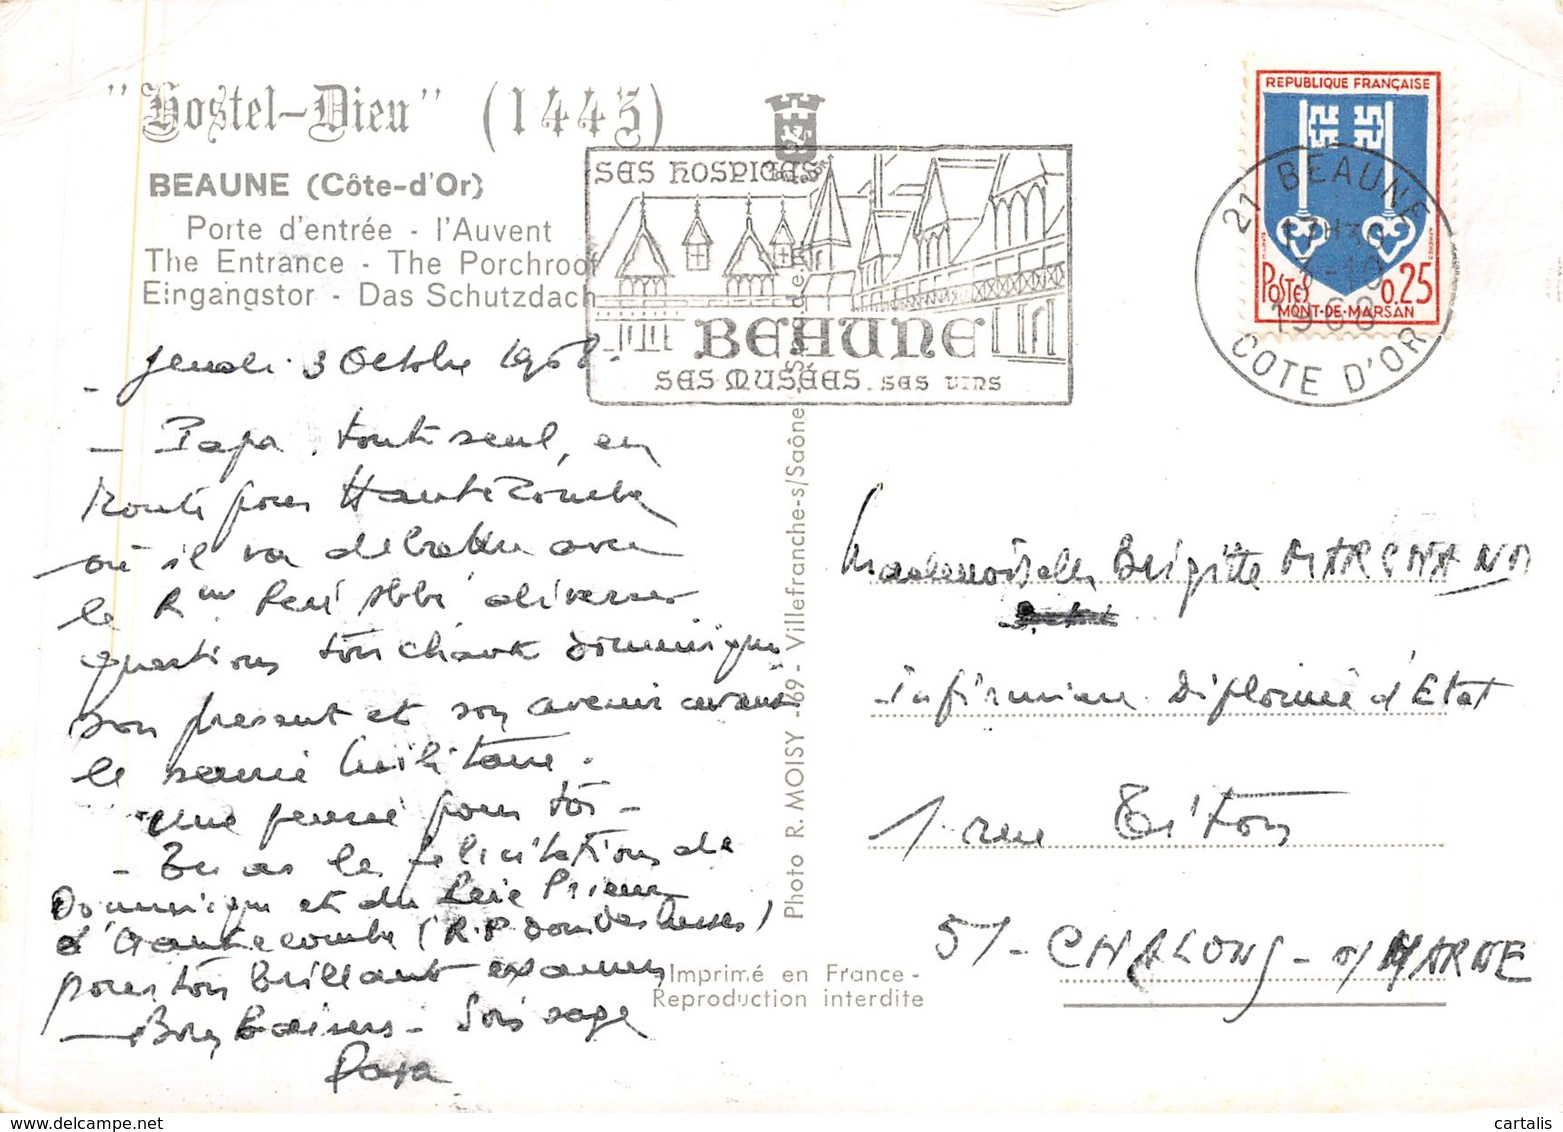 "Hostel-Dieu" (1443)
BEAUNE (Côte-d'Or)
Porte d'entrée - l'Auvent
The Entrance - The Porchroof
Eingangstor - Das Schutzdach
SES HOSPICES
BEAUNE
SES MUSÉES. SES VINS
REPUBLIQUE FRANÇAISE
POSTES 0.25
MONT-DE-MARSAN
21 BEAUNE
17H30
3-10
1968
COTE D'OR
- Jeudi 3 Octobre 1968 -
- Papa, tout seul, en
route pour Hautecombe
où il va débattre avec
le Rme Père Abbé diverses
questions touchant Dominique
son présent et son avenir avant
le service militaire.
Une pensée pour toi -
- Tu as les félicitations de
Dominique et du Père Prieur
d'Hautecombe (R.P. Dom
pour ton brillant examen
- Bons baisers - Sois sage
Papa
Photo R. MOISY - 69 - Villefranche-s/Saône
Imprimé en France -
Reproduction interdite
Mademoiselle Brigitte MARCHAND
Infirmière Diplômée d'Etat
1 rue Titon
51 - CHALONS - s/ MARNE
cartalis